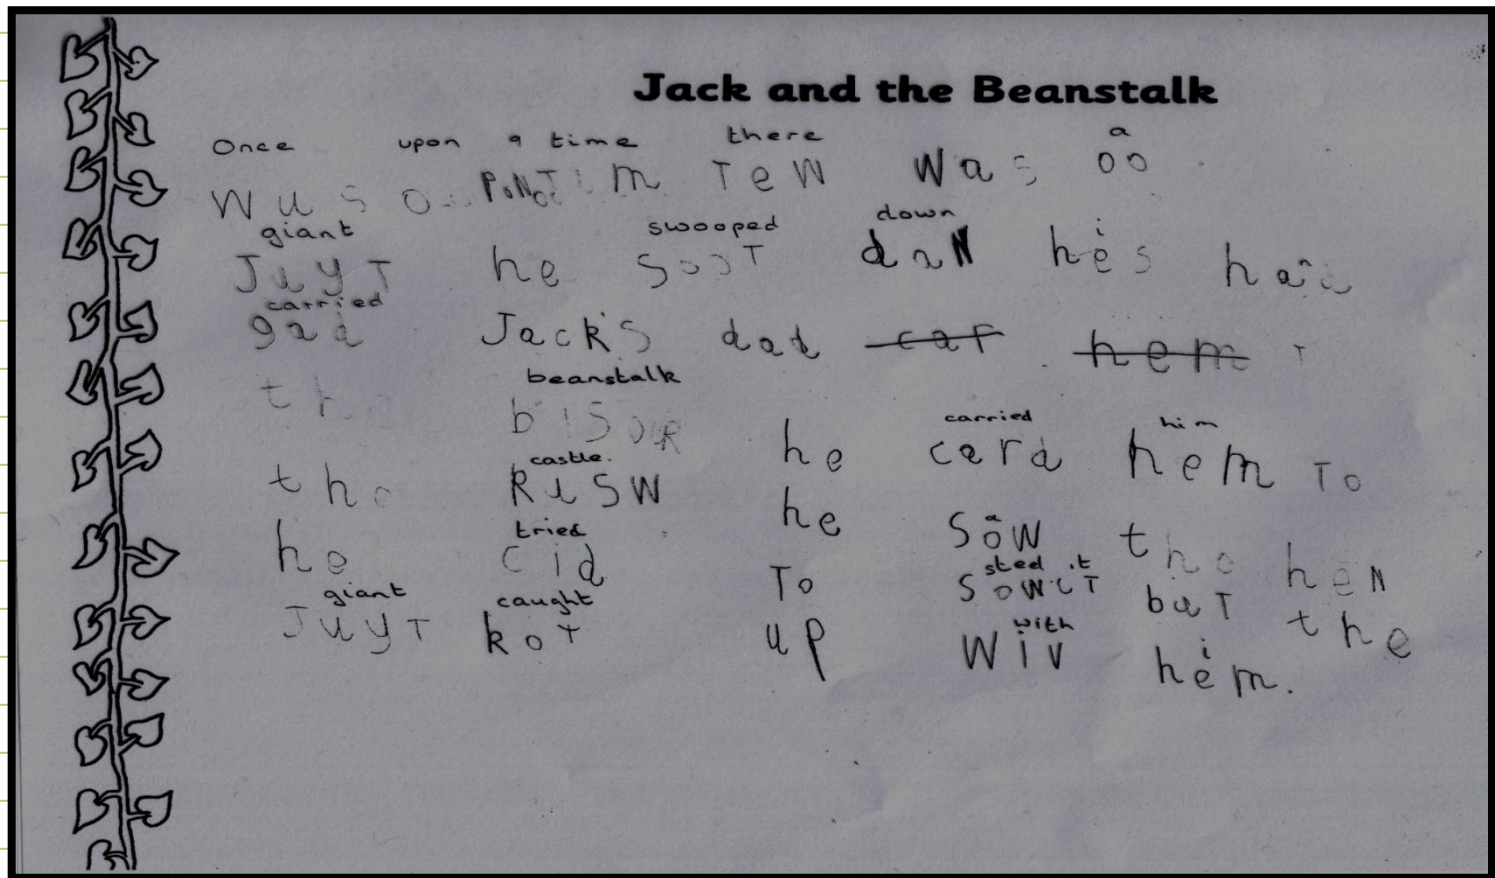 Jack and the Beanstalk
Once upon a time there a
wus o PoNoTim Tew was oo
giant swooped down
JuyT he SooT daN hes
carried
gad Jack's dad car hem T
beanstalk
the
carried him
he card hem To
castle.
the KusW he SoW the heN
a
tried sted it
he cid To SowiT buT the
giant caught with
JuyT koT up wiv hem.